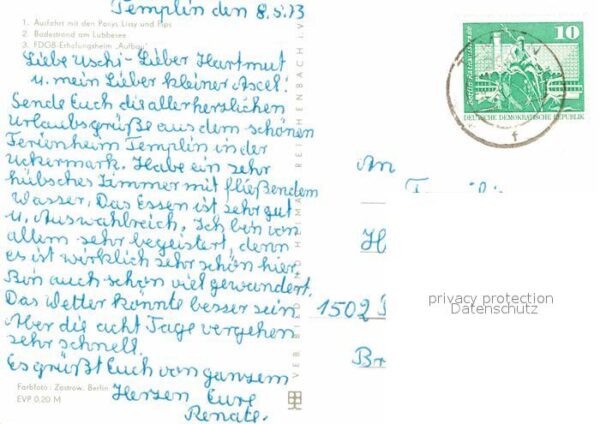 Templin den 8.5.73
1. Ausfahrt mit den Ponys Lissy und Pips
2. Badestrand am Lübbesee
3. FDGB-Erholungsheim „Aufbau“
Liebe Uschi - Lieber Hartmut
u. mein Lieber kleiner Axel!
Sende Euch die allerherzlichen
Urlaubsgrüße aus dem schönen
Ferienheim Templin in der
Uckermark. Habe ein sehr
hübsches Zimmer mit fließendem
Wasser. Das Essen ist sehr gut
u. Auswahlreich. Ich bin von
allem sehr begeistert, denn
es ist wirklich sehr schön hier.
Bin auch schon viel gewandert.
Das Wetter könnte besser sein
Aber die acht Tage vergehen
sehr schnell.
Es grüßt Euch von ganzem
Herzen Eure
Renate.
Farbfoto: Zastrow, Berlin
EVP 0,20 M
VEB BILD UND HEIMAT REICHENBACH I. V.
10
DEUTSCHE DEMOKRATISCHE REPUBLIK
An
H
1502
Br
privacy protection
Datenschutz